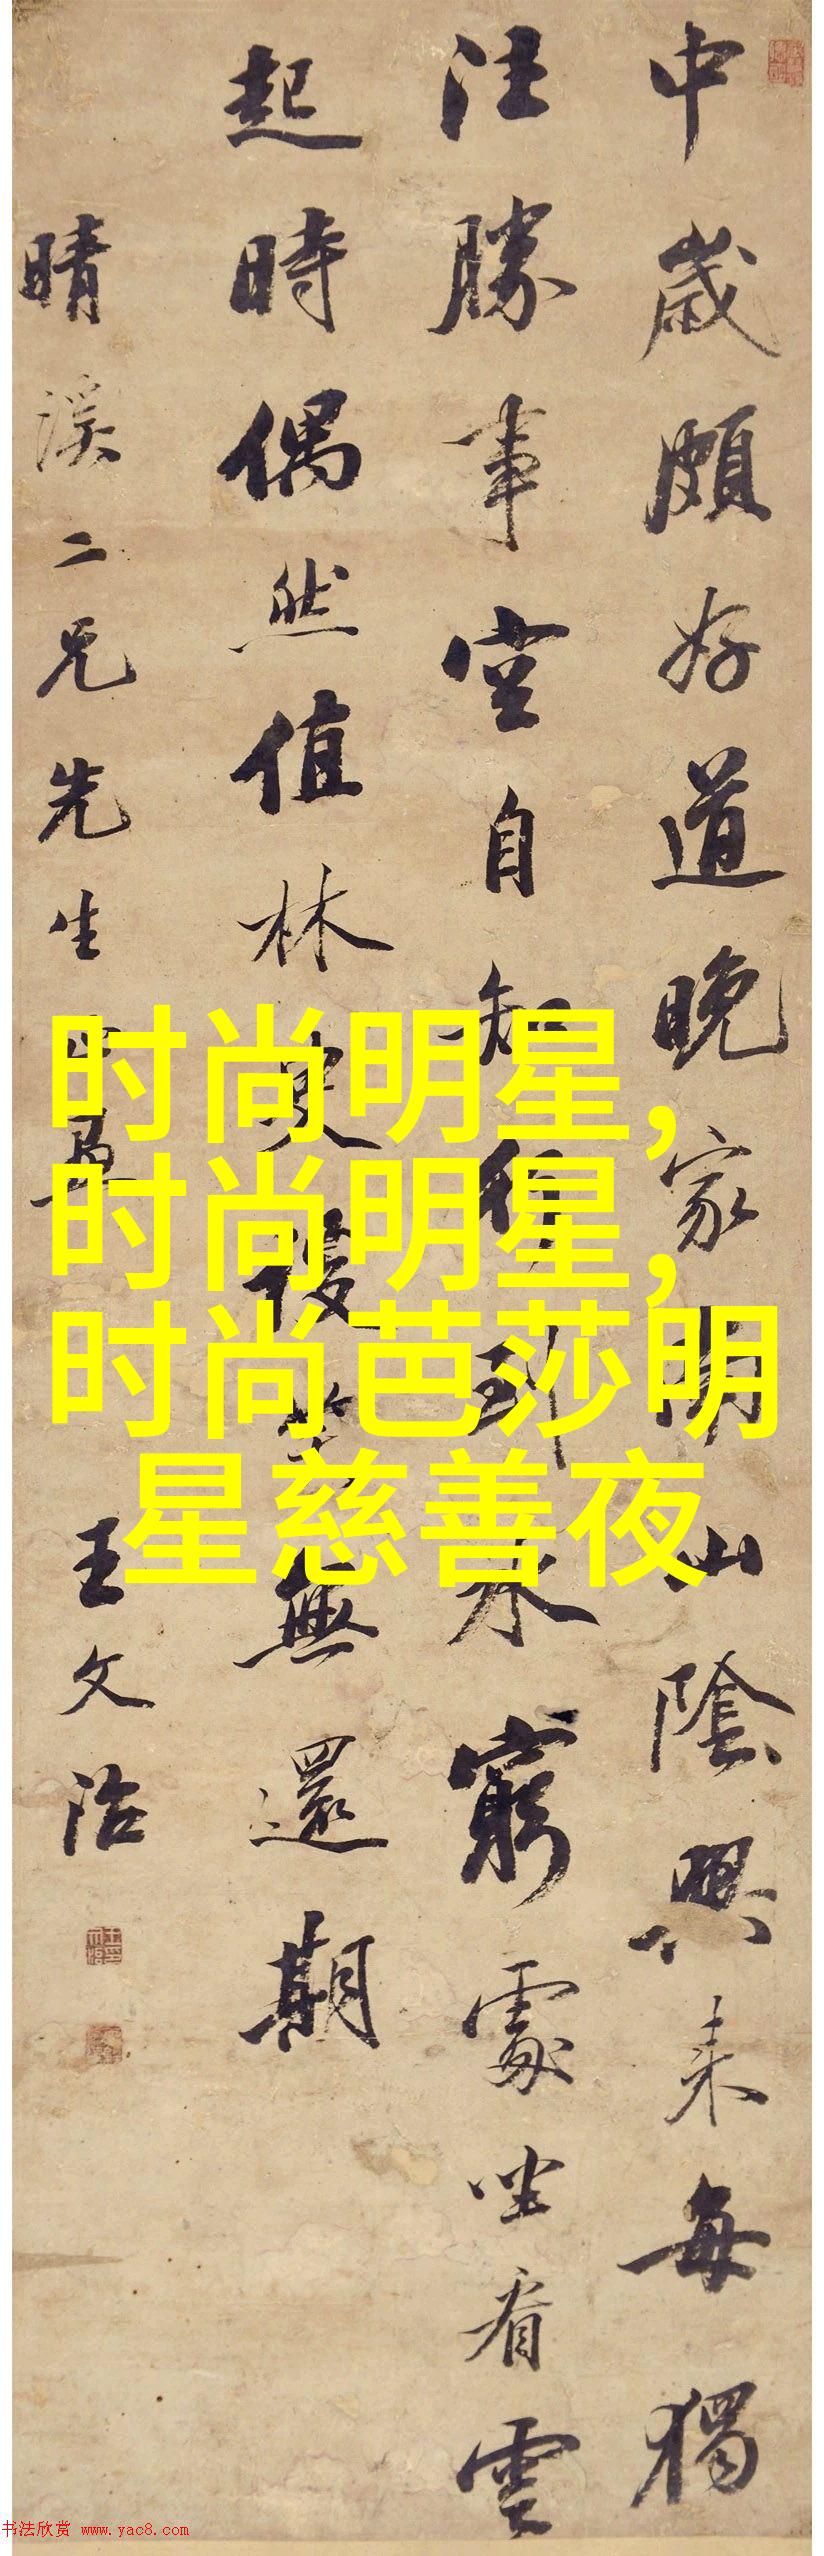 中歲頗好道晚家南山陰興来每獨
往勝事空自知行到水窮處坐看雲
起時偶然值林叟談笑無還期
晴溪二兄先生
王文治
时尚明星,
时尚明星,
时尚芭莎明
星慈善夜
书法欣赏 www.yac8.com